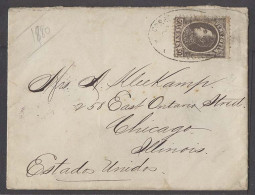 1890
Mrs. A. Kleekamp
258 East Ontario Street,
Chicago
Illinois.
Estados Unidos.